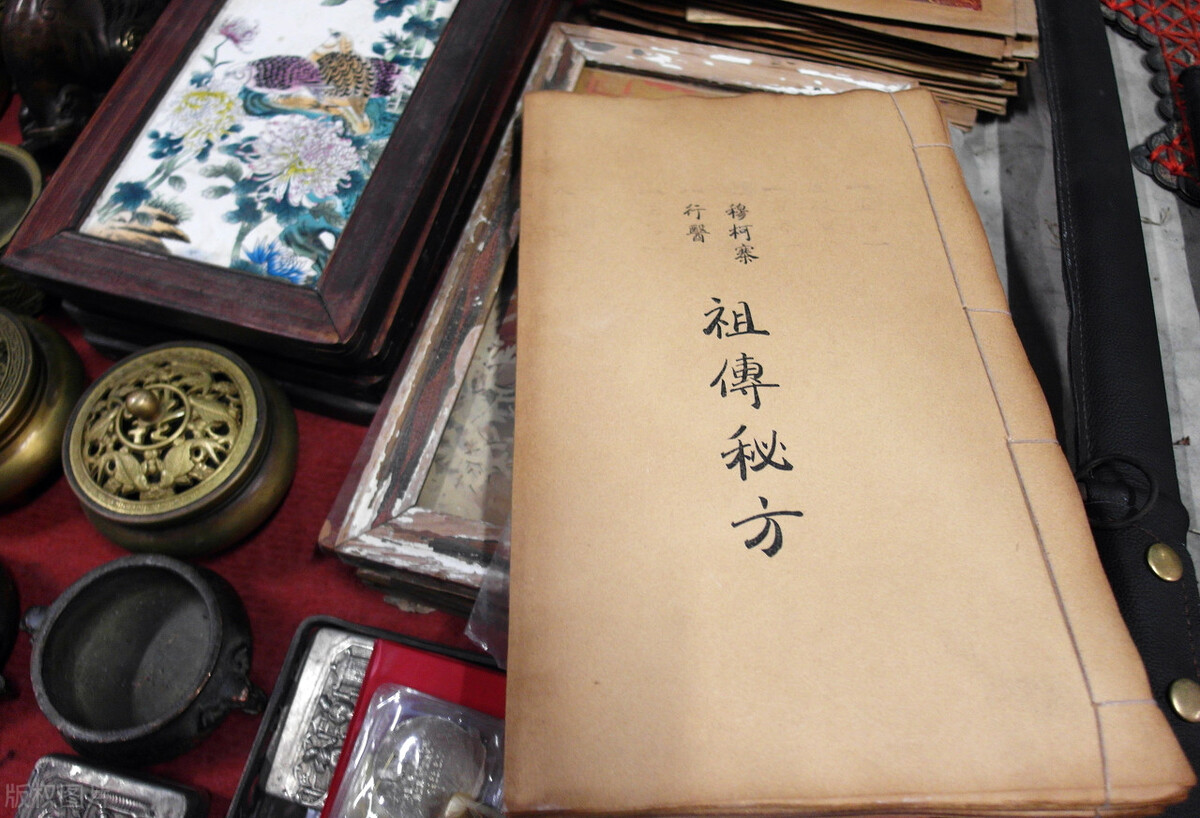 穆柯寨
行醫
祖傳秘方
版权图片